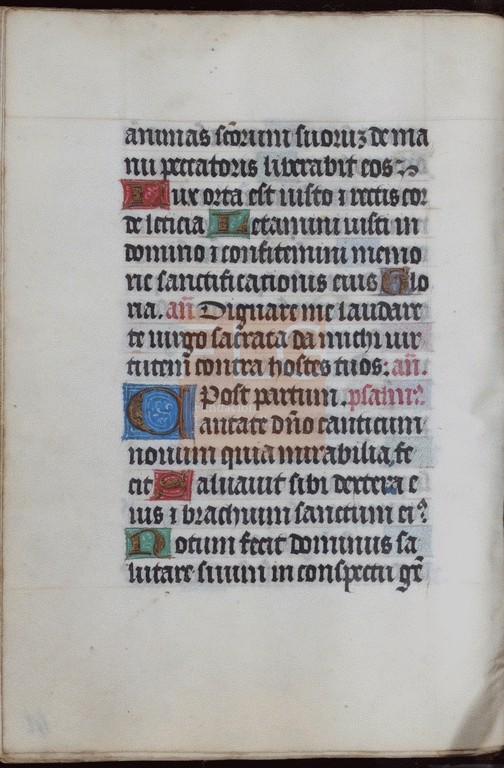 animas sc̄orum suoruꝫ de ma
nu peccatoris liberabit eos
Lux orta est iusto ⁊ rectis cor
de leticia Letamini iusti in
domino ⁊ confitemini memo
rie sanctificationis eius Glo
ria. an̄ Dignare me laudare
te uirgo sacrata da michi uir
tutem contra hostes tuos: an̄.
Post partum. psalm᷒
Cantate dn̄o canticum
nouum quia mirabilia fe
cit Saluauit sibi dextera e
ius ⁊ brachium sanctum ei᷒
Notum fecit dominus sa
lutare suum in conspectu gē